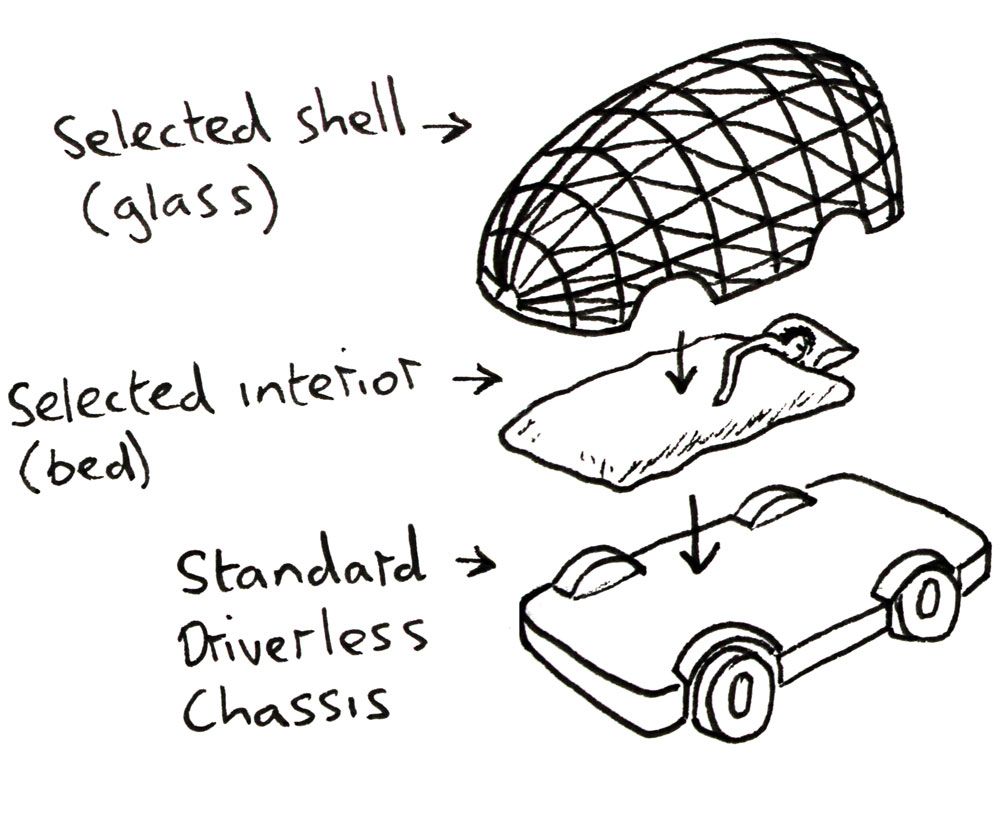 Selected shell
(glass)
Selected interior
(bed)
Standard
Driverless
Chassis